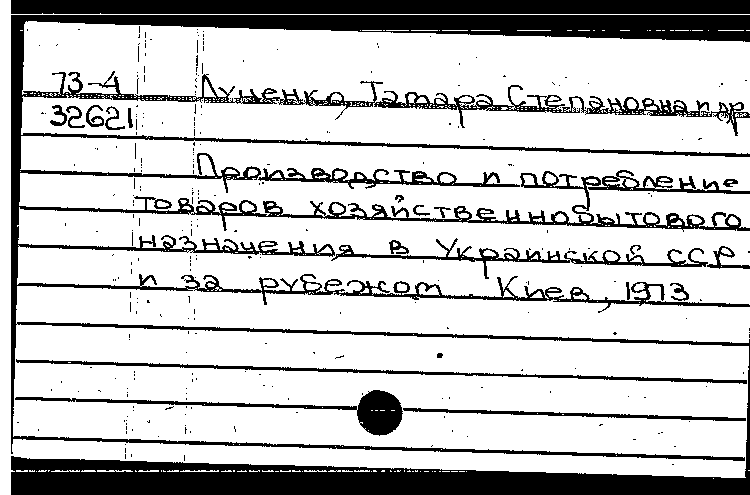 73-4 Луценко Тамара Степановна и др
32621
Производство и потребление
товаров хозяйственнобытового
назначения в Украинской ССР
и за рубежом. Киев, 1973